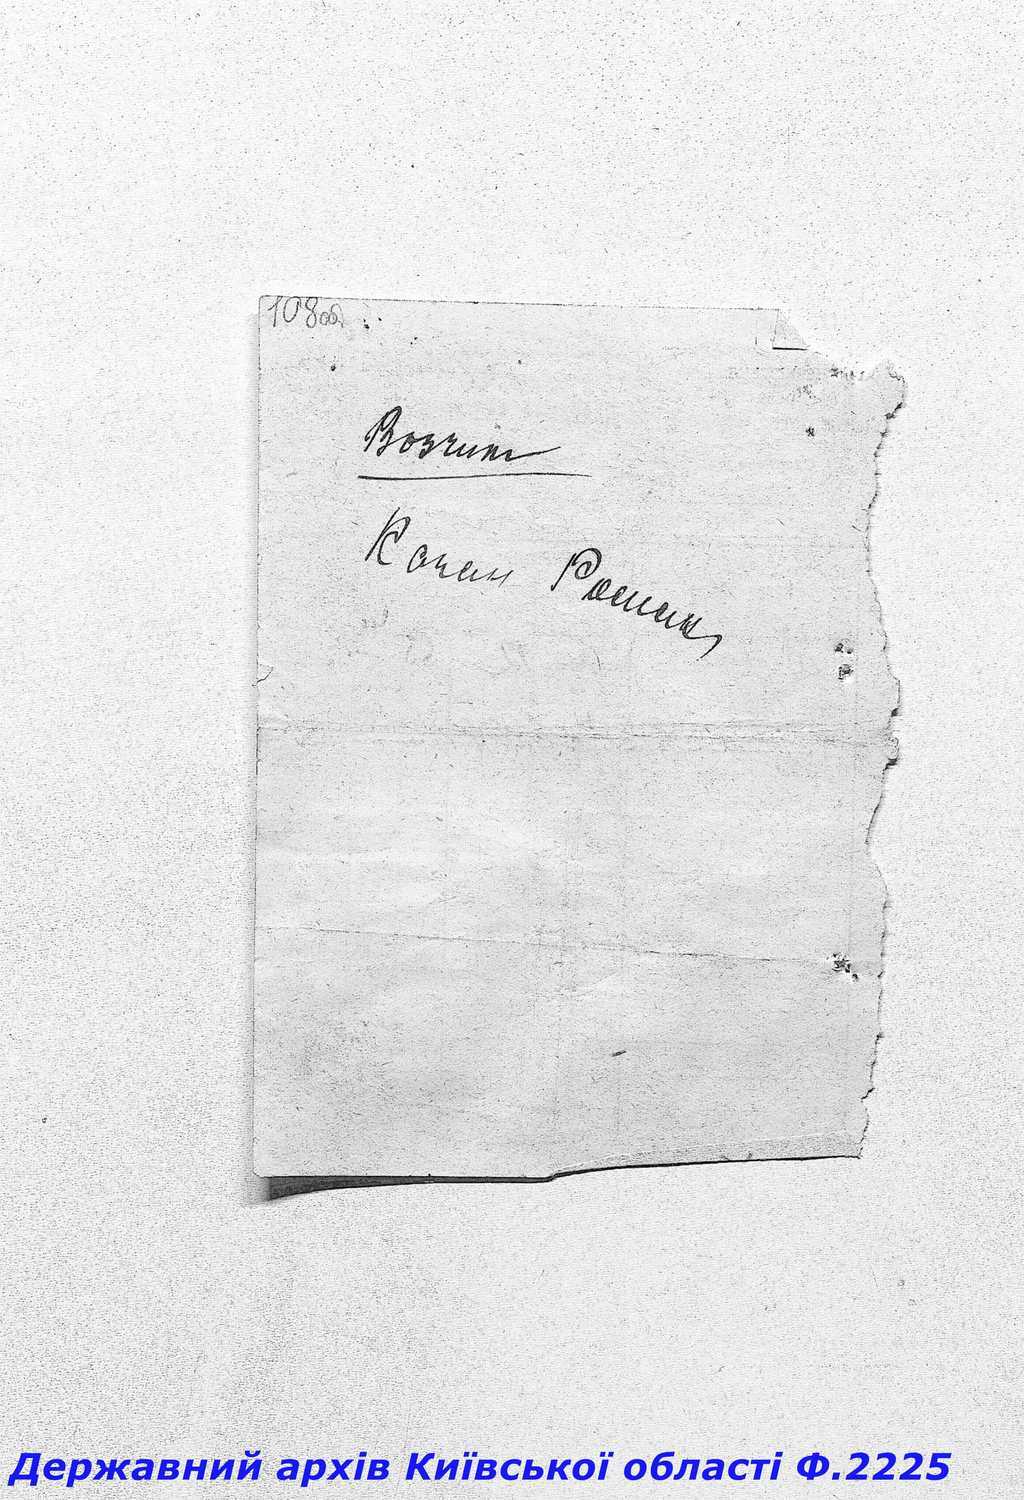 108об.
Возчик
Качан Роман
Державний архів Київської області Ф.2225